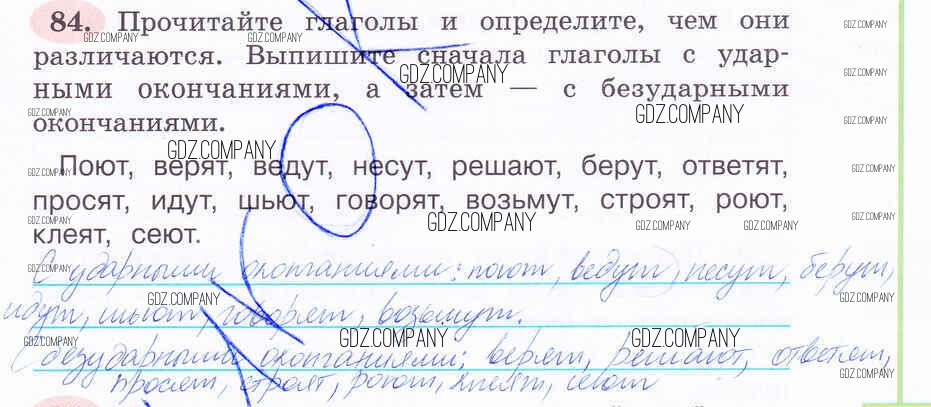 84. Прочитайте глаголы и определите, чем они
GDZ.COMPANY GDZ.COMPANY GDZ.COMPANY
различаются. Выпишите сначала глаголы с удар-
GDZ.COMPANY GDZ.COMPANY
ными окончаниями, а затем — с безударными
GDZ.COMPANY GDZ.COMPANY GDZ.COMPANY
окончаниями.
GDZ.COMPANY
Поют, верят, ведут, несут, решают, берут, ответят,
GDZ.COMPANY GDZ.COMPANY
просят, идут, шьют, говорят, возьмут, строят, роют,
GDZ.COMPANY GDZ.COMPANY GDZ.COMPANY GDZ.COMPANY GDZ.COMPANY
клеят, сеют.
С ударными окончаниями: поют, ведут, несут, берут,
GDZ.COMPANY GDZ.COMPANY GDZ.COMPANY
идут, шьют, говорят, возьмут.
GDZ.COMPANY GDZ.COMPANY GDZ.COMPANY
С безударными окончаниями: верят, решают, ответят,
GDZ.COMPANY
просят, строят, роют, клеят, сеют